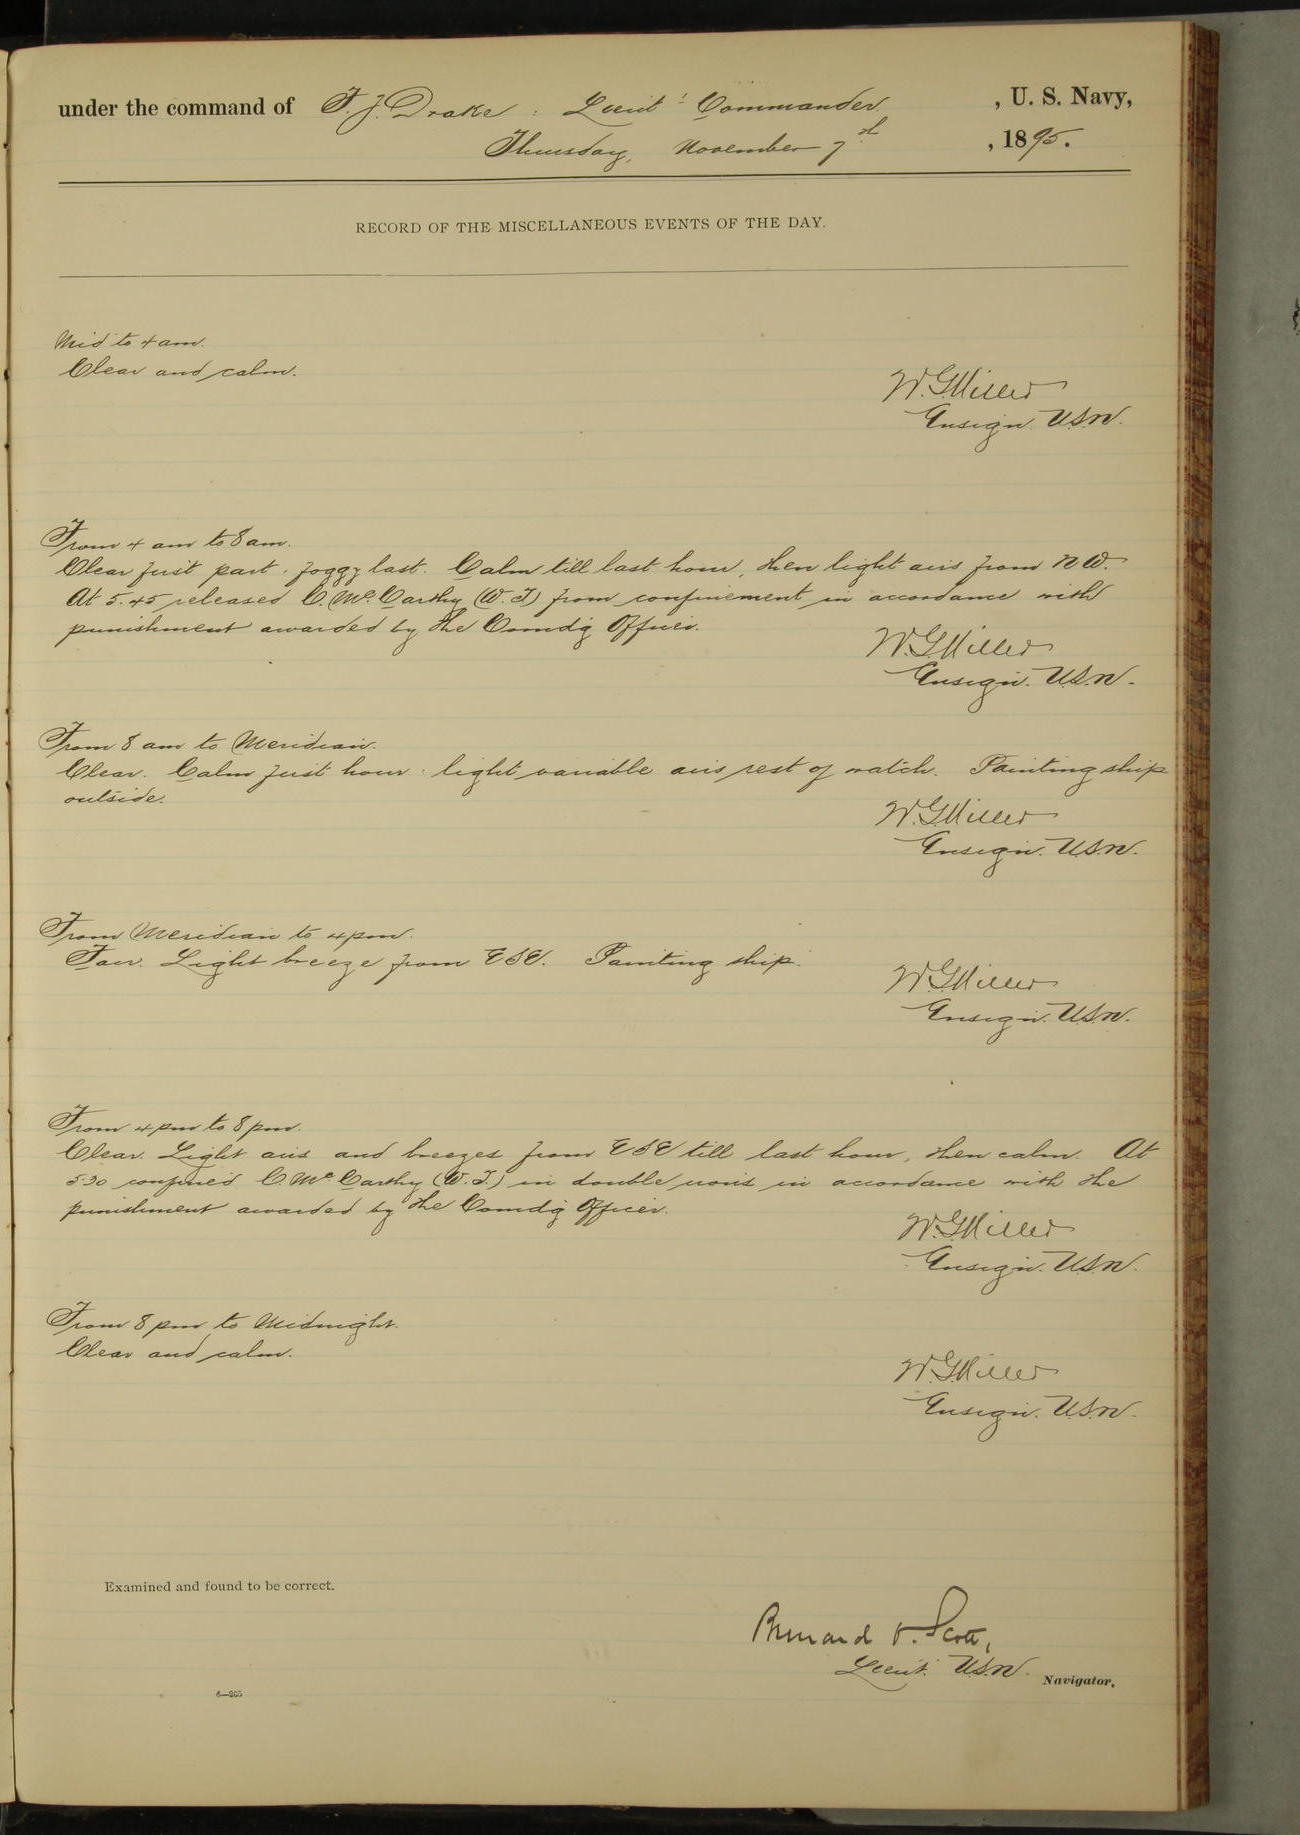 under the command of F. J. Drake, Lieut. Commander, U. S. Navy,
Thursday, November 7th, 1895.
RECORD OF THE MISCELLANEOUS EVENTS OF THE DAY.
Mid to 4 am.
Clear and calm.
W. G. Miller
Ensign. U.S.N.
From 4 am to 8 am.
Clear first part, foggy last. Calm till last hour, then light airs from NW.
At 5.45 released C. McCarthy (W.T.) from confinement in accordance with
punishment awarded by the Comdg Officer.
W. G. Miller
Ensign. U.S.N.
From 8 am to Meridian.
Clear. Calm first hour, light variable airs rest of watch. Painting ship
outside.
W. G. Miller
Ensign. U.S.N.
From Meridian to 4 pm.
Fair. Light breeze from ESE. Painting ship.
W. G. Miller
Ensign. U.S.N.
From 4 pm to 8 pm.
Clear. Light airs and breezes from ESE till last hour, then calm. At
5.30 confined C. McCarthy (W.T.) in double irons in accordance with the
punishment awarded by the Comdg Officer.
W. G. Miller
Ensign. U.S.N.
From 8 pm to Midnight.
Clear and calm.
W. G. Miller
Ensign. U.S.N.
Examined and found to be correct.
Bernard O. Scott,
Lieut. U.S.N. Navigator.
6—265